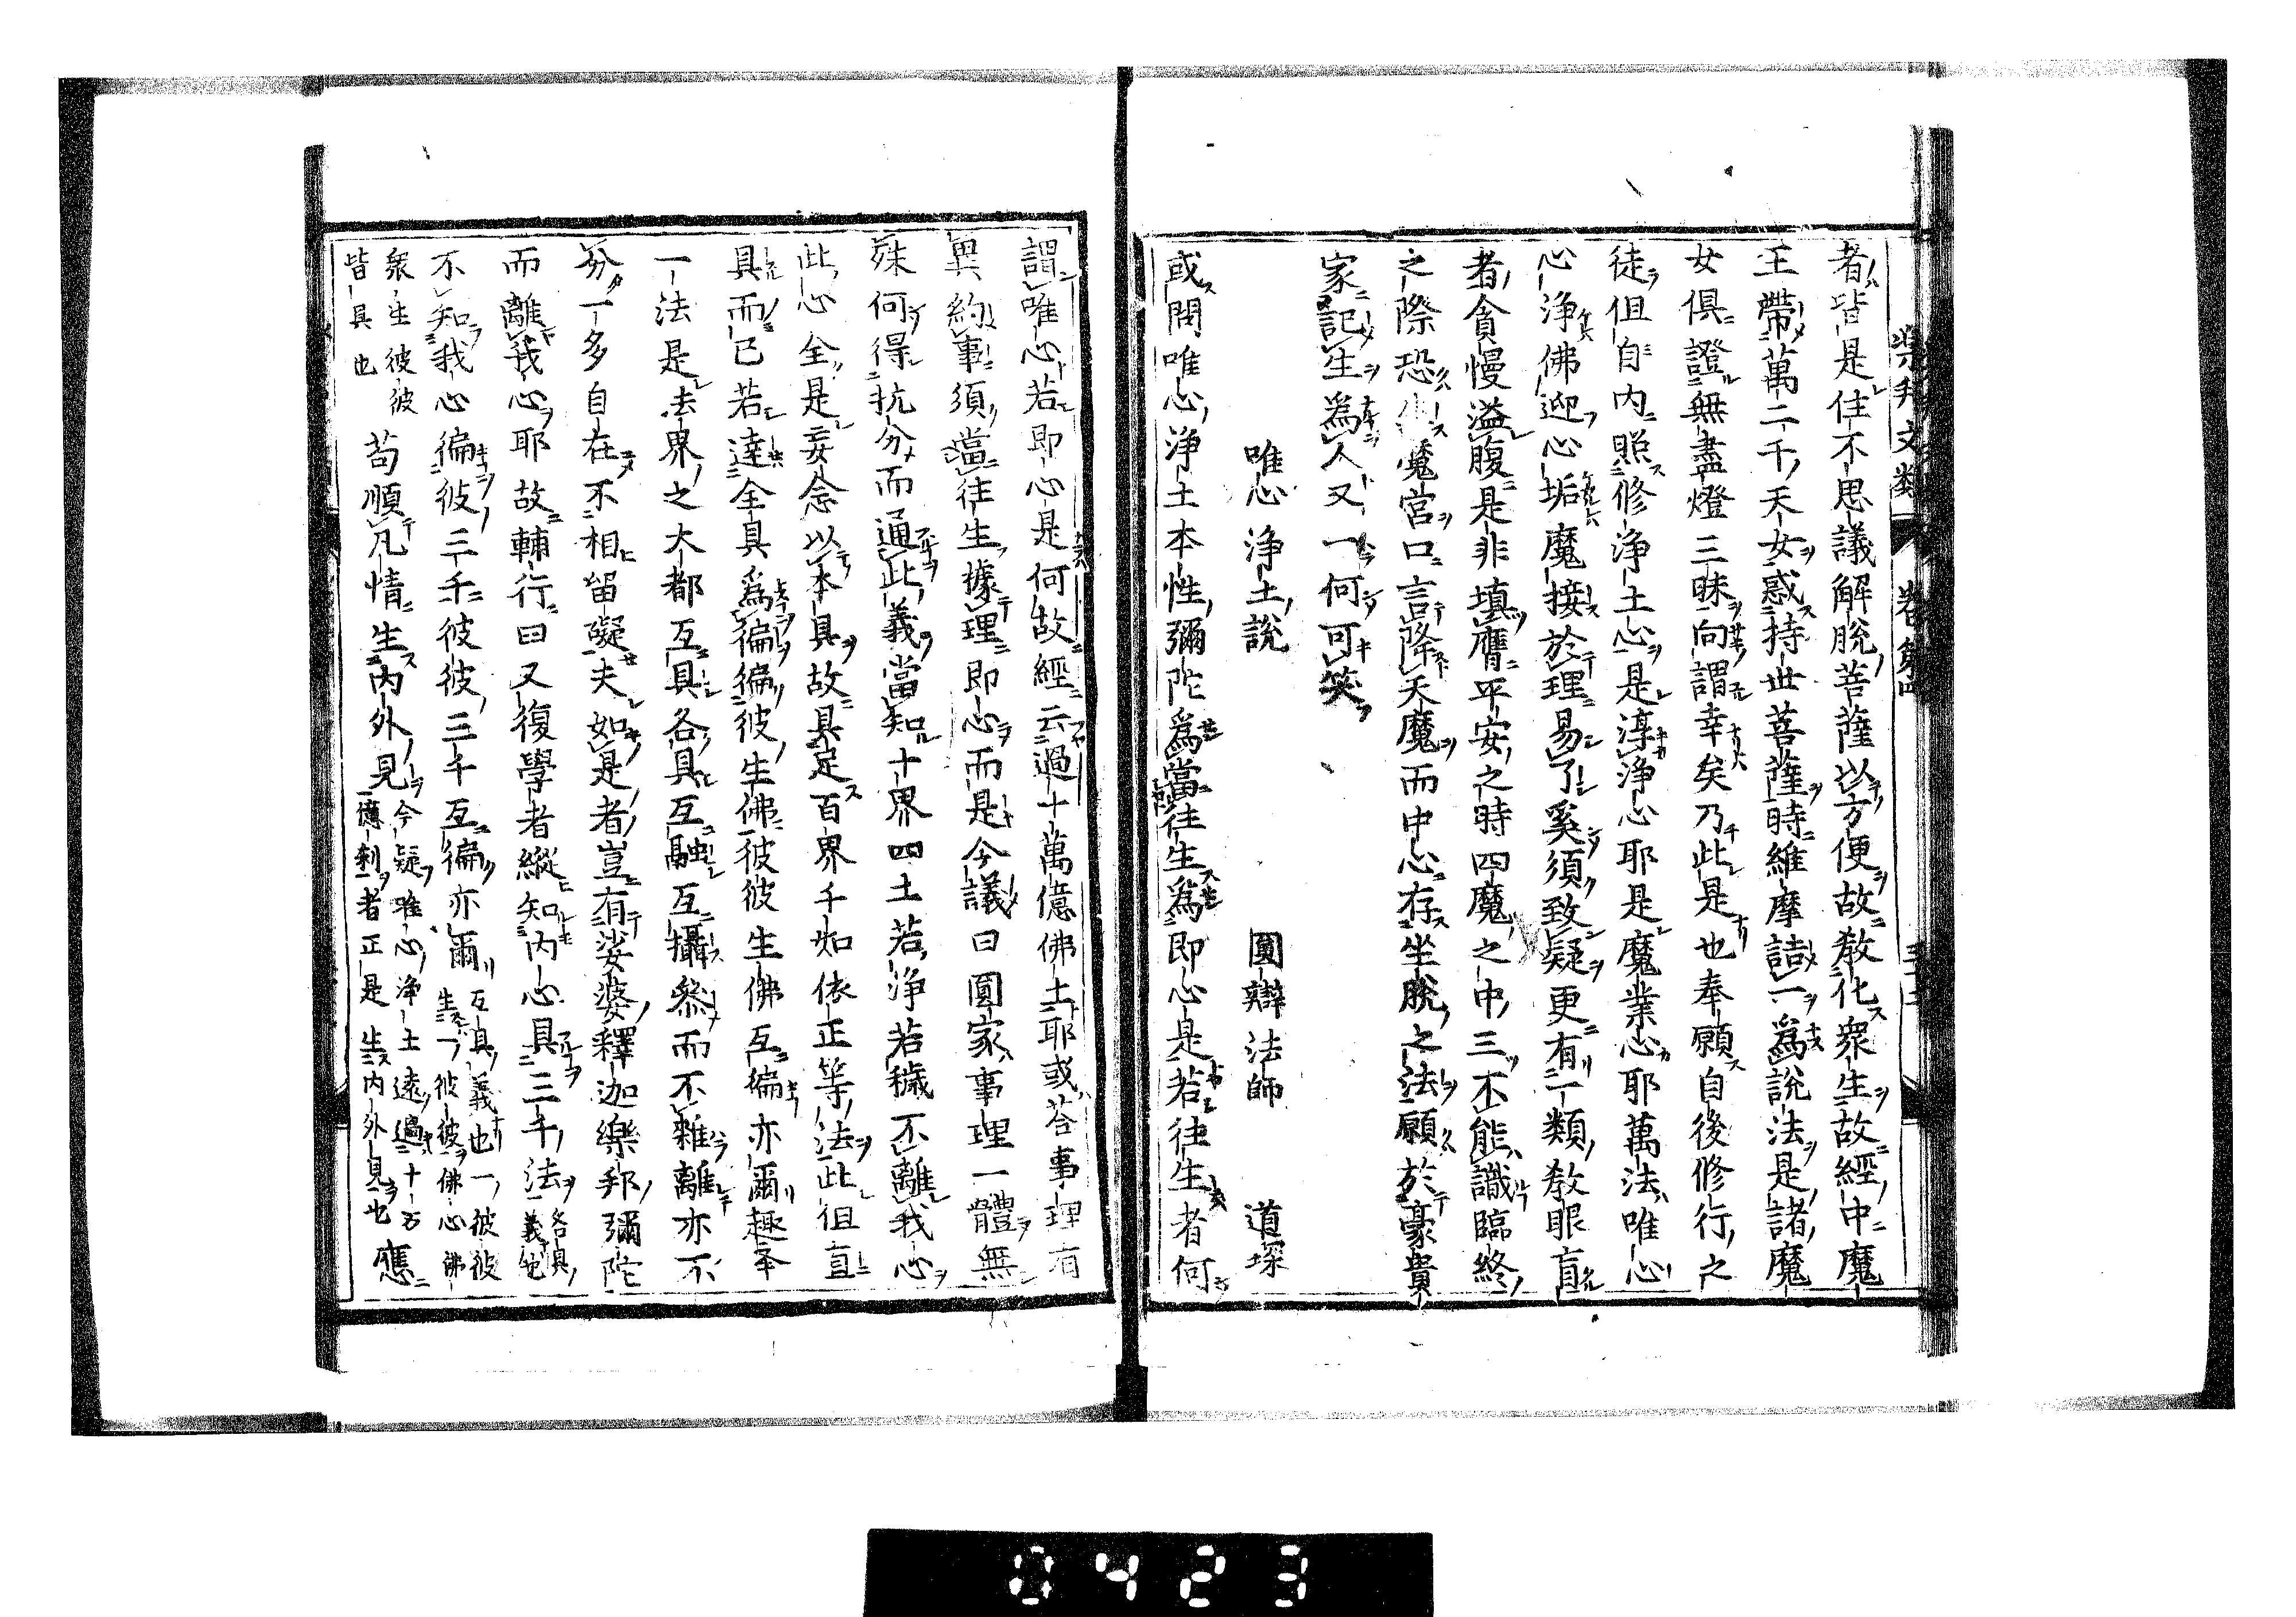 樂邦文類 卷第四
者皆是住不思議解脫菩薩以方便故教化衆生故經中魔
王帶萬二千天女惑持世菩薩時維摩詰一爲說法是諸魔
女俱證無盡燈三昧向謂幸矣乃此是也奉願自後修行之
徒但自內照修淨土心是淳淨心耶是魔業心耶萬法唯心
心淨佛迎心垢魔接於理易了奚須致疑更有一類教眼盲
者貪慢溢腹是非填膺平安之時四魔之中三不能識臨終
之際恐生魔宮口言降天魔而中心存坐脫之法願於豪貴
家記生爲人又一何可笑
唯心淨土說 圓辯法師 道琛
或問唯心淨土本性彌陀爲當往生爲即心是若往生者何
謂唯心若即心是何故經云過十萬億佛土耶或荅事理有
異約事須當往生據理即心而是今議曰圓家事理一體無
殊何得抗分而通此義當知十界四土若淨若穢不離我心
此心全是妄念以本具故具足百界千如依正等法此但直
具而已若達全具爲徧徧彼生佛彼彼生佛互徧亦爾趣举
一法是法界之大都互具各具互融互攝叅而不雜離亦不
分一多自在不相留礙夫如是者豈有娑婆釋迦樂邦彌陀
而離我心耶故輔行曰又復學者縱知內心具三千法各具義也
不知我心徧彼三千彼彼三千互徧亦爾互具義也一彼彼生一彼彼佛心佛
衆生彼彼皆具也苟順凡情生內外見今疑唯心淨土遠過十万億刹者正是生內外見也應
0423